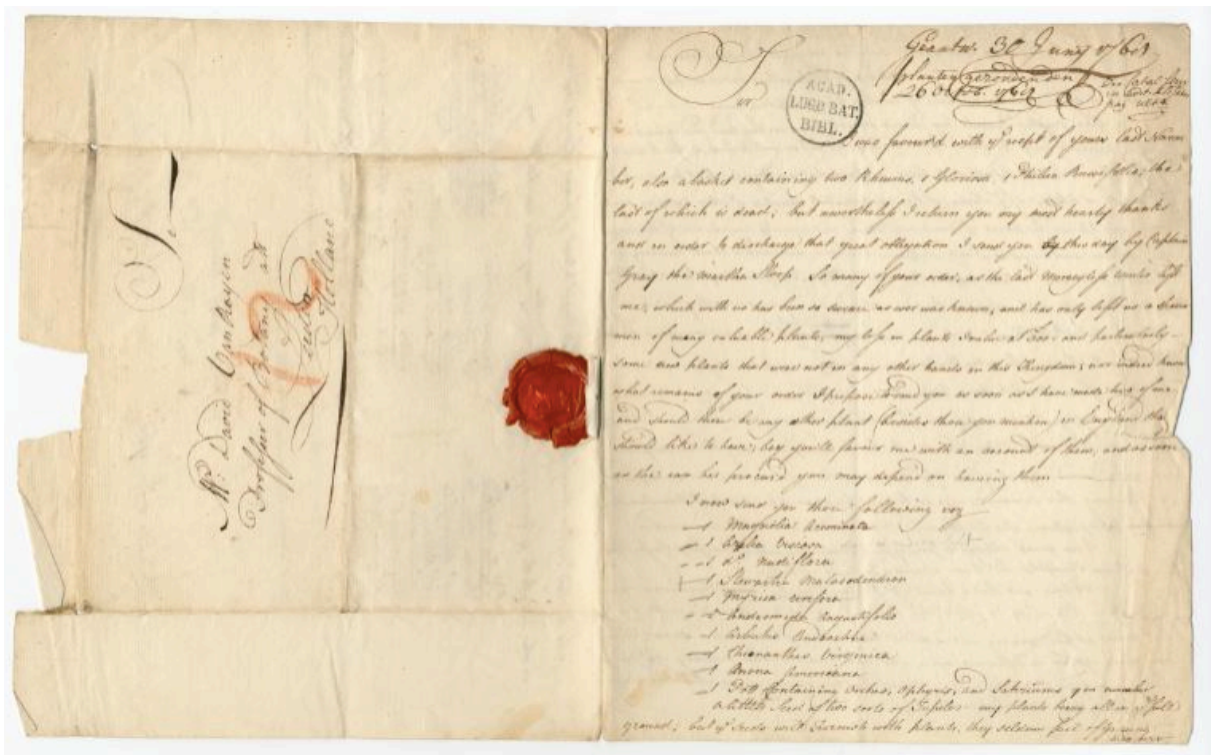 Sr
Mr. David Van Royen
Professor of Botanic att
Leiden
Holland
Geantw. 30 Juny 1761
planten gezonden den
26 Octob. 1761
Sir
ACAD.
LUGD. BAT.
BIBL.
I was favour'd with ye recept of yours last Novem
ber, also a basket containing two Rheums, 1 Gloriosa, 1 the
last of which is dead; but neverthelefs I return you my most hearty thanks
and in order to discharge that great obligation I send you by this day by Captain
Gray the Martha Sloop So many of your order, as the last winter left
me, which with us has been so severe as ever was known, and has only left us a
men of many valuable plants, my lofs in plants I value at 500£ and particularly
some new plants that was not in any other hands in this Kingdom; nor indeed know
what remains of your order I propose to send you as soon as I have made
and should there be any other plant (besides those you mention) in England that
should like to have, beg you'll favour me with an account of them, and as soon
as the can be procur'd you may depend on haveing them
I now send you those following viz
1 Magnolia Acuminata
1 Azalea Viscosa
1 do. Nudiflora
1 Stewartia Malacodendron
1 Myrica cerifera
2 Andromeda Angustifolio
1 Arbutus Andrachne
1 Chionanthus Virginica
1 Anona Americana
1 Pott Containing Orchis, Ophrys, and Satiriums you mention
a little Seed of two sorts of my plants being all in ye full
ground; but ye Seeds will furnish with plants, they seldom fail of